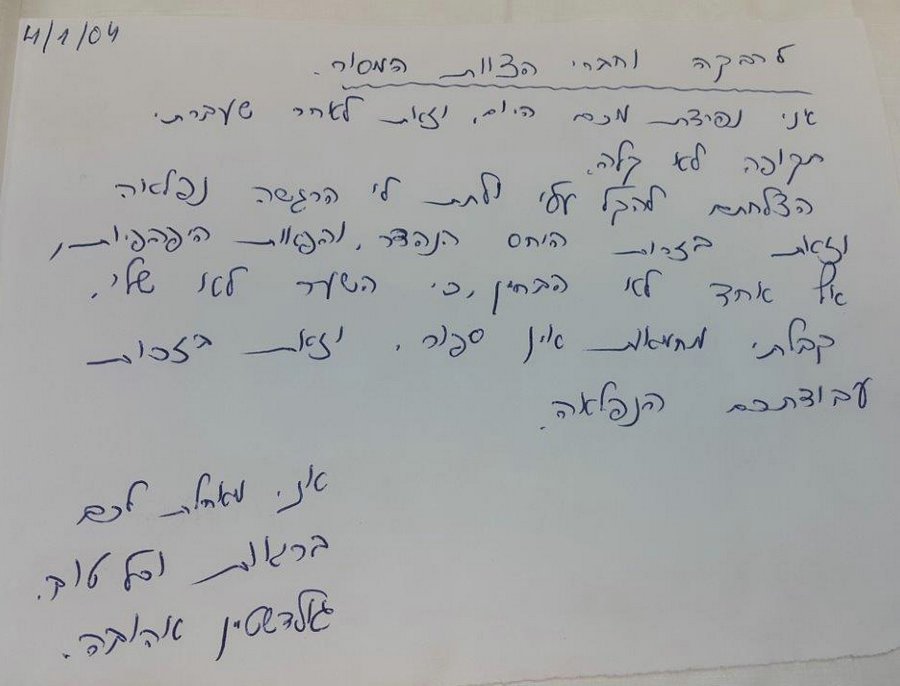 4/1/04
לרבקה וחברי הצוות המסור.
אני נפרדת מכם היום, וזאת לאחר שעברתי
תקופה לא קלה.
הצלחתם להקל עלי ולתת לי הרגשה נפלאה
וזאת בזכות היחס הנהדר, והפאות היפהפיות,
אף אחד לא הבחין, כי השער לא שלי.
קבלתי מחמאות אין ספור, וזאת בזכות
עבודתכם הנפלאה.
אני מאחלת לכם
בריאות וכל טוב.
גולדשטין אהובה.